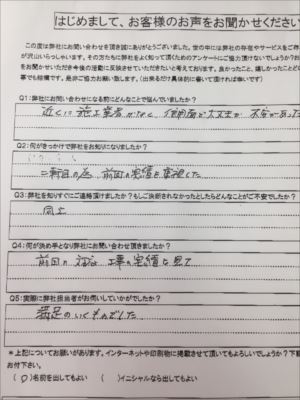 はじめまして、お客様のお声をお聞かせください
この度は弊社にお問い合わせを頂き誠にありがとうございます。世の中には弊社の存在やサービスをご存
が沢山いらっしゃいます。その方たちに弊社をよく知って頂くためのアンケートにご協力頂けないでしょうか?お
をお聞かせいただき今後の活動に反映させていただきたいと考えております。良かったこと、嬉しかったことどの
事でも結構です。是非ご協力お願い致します。(出来るだけ具体的に書いて頂ければ幸いです)
Q1:弊社にお問い合わせになる前にどんなことで悩んでいましたか?
近くの 施工業者 信用面が大丈夫か 不安があった
Q2:何がきっかけで弊社をお知りになりましたか?
二軒目の為 前回の実績を重視した
Q3:弊社を知りすぐにご連絡頂けましたか?もしご決断されなかったとしたらどんなことがご不安でしたか?
同上
Q4:何が決め手となり弊社にお問い合わせ頂きましたか?
前回の 工事の実績を見て
Q5:実際に弊社担当者がお伺いしていかがでしたか?
満足のいくものでした
*上記についてお願いがあります。インターネットや印刷物に掲載させて頂いてもよろしいでしょうか?下記
お付下さい。
(O)名前を出してもよい ( )イニシャルなら出してもよい